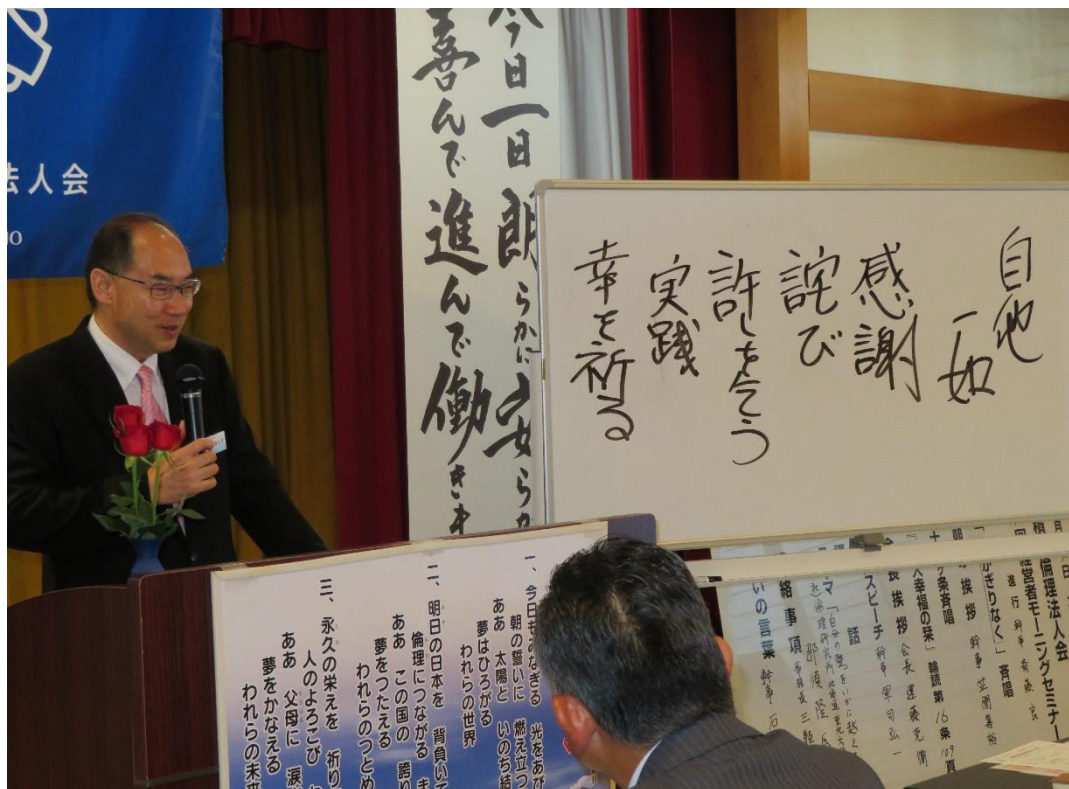 法人会
今日一日 朗らかに 安らか
喜んで 進んで 働きま
自他
一如
感謝
詫び
許しを乞う
実践
幸を祈る
一、今日もみなぎる 光をあび
朝の誓いに 燃え立つ
ああ 太陽と いのち結
夢はひろがる
われらの世界
二、明日の日本を 背負いて
倫理につながる ま
ああ この国の 誇り
夢をつたえる
われらのつとめ
三、永久の栄えを 祈り
人のよろこび
ああ 父母に 涙
夢をかなえる
われらの未来
倫理法人会
経営者モーニングセミナー
進行 幹事 斉藤 良
かぎりなく」 斉唱
挨拶 幹事 笠間善裕
条斉唱
人幸福の栞」 輪読 第16条 109頁
長挨拶 会長 遠藤克
スピーチ 幹事 軍司弘一
話
マ「自分の壁をいかに越え
絡事項
いの言葉 幹事 石